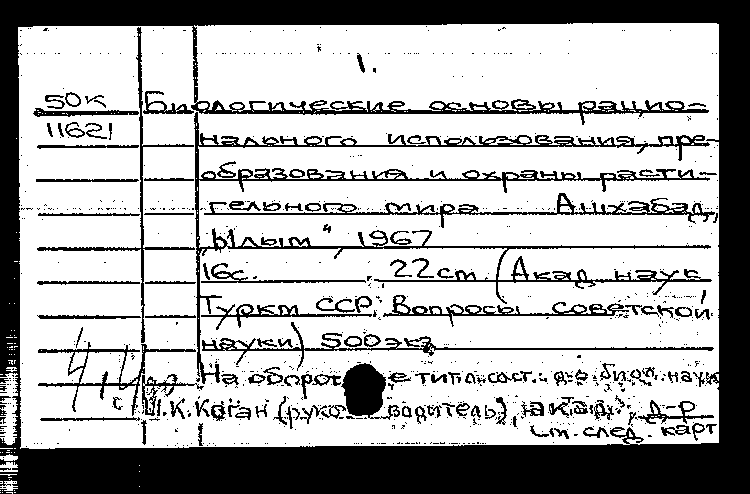 1.
50к Биологические основы рацио-
11621 нального использования, пре-
образования и охраны расти-
тельного мира Ашхабад,
"Ылым", 1967
16с. 22см (Акад наук
Туркм ССР. Вопросы советской
науки) 500 экз
На оборот е тит. сост.: д-р биол. наук
Ш.К. Коган (руко водитель), акад., д-р
см. след. карт